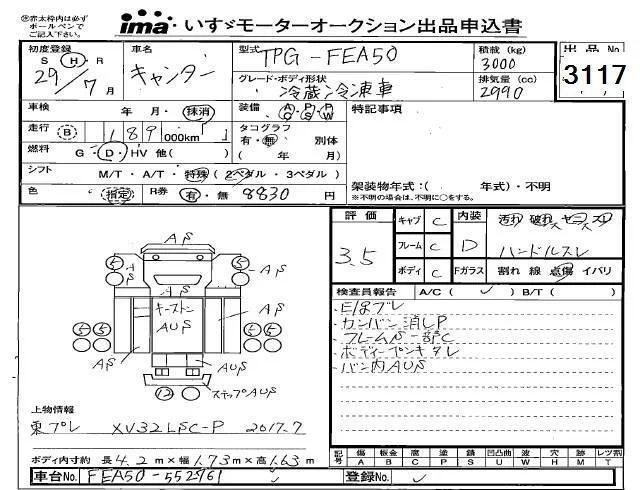 ㊟赤太枠内は必ず
ボールペンで
ご記入下さい。
ima いすゞモーターオークション出品申込書
初度登録 S H R 29/7月
車名 キャンター
型式 TPG-FEA50
積載 (kg) 3000
出品No 3117
グレード・ボディ形状 冷蔵冷凍車
排気量 (cc) 2990
車検 年 月・抹消
装備 A/C P/S P/W
特記事項
走行 B 189 000km
タコグラフ 有・無 別体 ( 年 月)
燃料 G・D・HV 他( )
シフト M/T・A/T・特殊 (2ペダル・3ペダル)
架装物年式:( 年式)・不明
※不明の場合は、不明に○をする。
色 指定 R券 有・無 8830 円
評価 3.5
キャブ C 内装 D 汚れ 破れ
フレーム C ハンドルスレ
ボディ C Fガラス 割れ 線 点傷 イバリ
検査員報告 A/C( ✓ ) B/T( )
カンバン消しP
フレームS一部C
バン内AUS
AS
AS
AS
AS
キーストン
AUS
AS
AS
ステップAUS
5 5 5 5 5 5 12
上物情報
東プレ XV32LSC-P 2017.7
ボディ内寸約 長4.2m×幅1.73m×高1.63m
記号 傷A 板金B 腐C 塗P 錆S 凹凸曲U 波W 穴H 跡M レツ割T
車台No. FEA50-552961
登録No.